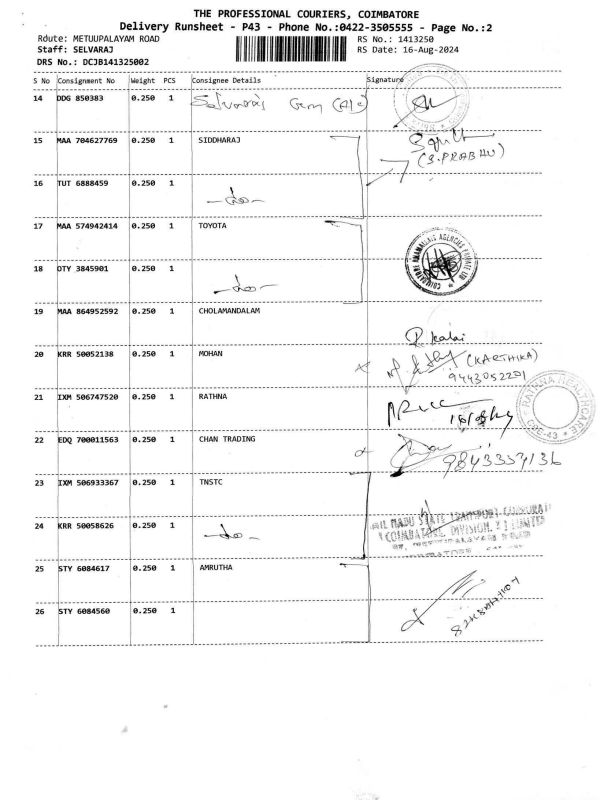 THE PROFESSIONAL COURIERS, COIMBATORE
Delivery Runsheet - P43 - Phone No.:0422-3505555 - Page No.:2
Route: METUUPALAYAM ROAD
RS No.: 1413250
Staff: SELVARAJ
RS Date: 16-Aug-2024
DRS No.: DCJB141325002
S No Consignment No Weight PCS Consignee Details Signature
14 DDG 850383 0.250 1
15 MAA 704627769 0.250 1 SIDDHARAJ
(S.PRABHU)
16 TUT 6888459 0.250 1 -do-
17 MAA 574942414 0.250 1 TOYOTA
18 OTY 3845901 0.250 1 -do-
19 MAA 864952592 0.250 1 CHOLAMANDALAM
R kalai
20 KRR 50052138 0.250 1 MOHAN (KARTHIKA)
9443052201
21 IXM 506747520 0.250 1 RATHNA
RATHNA HEALTHCARE
CBE-43
22 EDQ 700011563 0.250 1 CHAN TRADING
9843357136
23 IXM 506933367 0.250 1 TNSTC
TAMIL NADU STATE TRANSPORT CORPORATION
COIMBATORE DIVISION
24 KRR 50058626 0.250 1 -do-
25 STY 6084617 0.250 1 AMRUTHA
26 STY 6084560 0.250 1